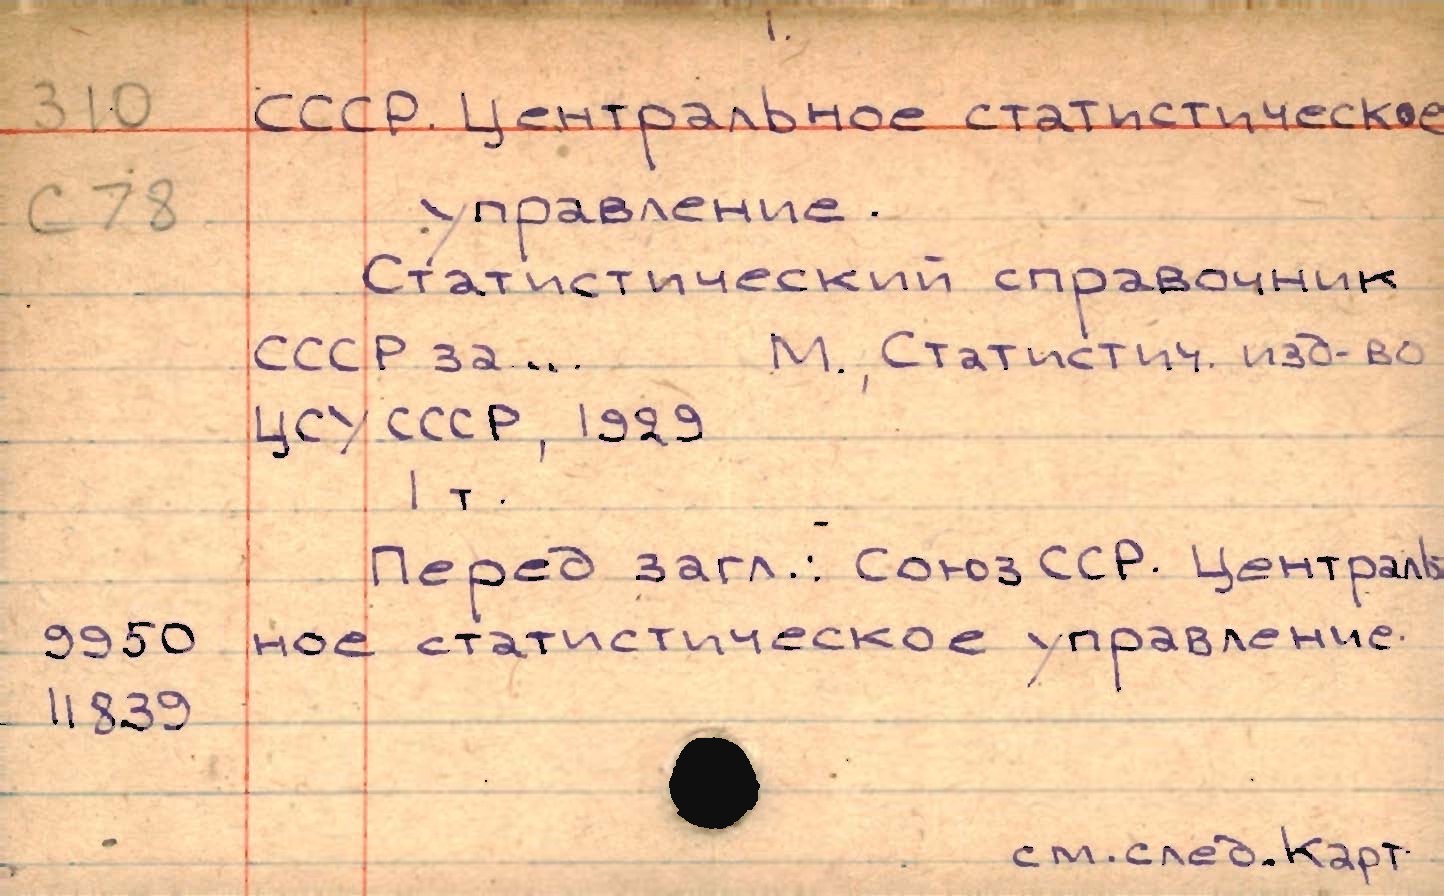 1.
310 СССР. Центральное статистическое
С78 управление.
Статистический справочник
СССР за ... М., Статистич. изд-во
ЦСУ СССР, 1929
1 т.
Перед загл.: Союз ССР. Централь
9950 ное статистическое управление.
11839
см. след. карт.